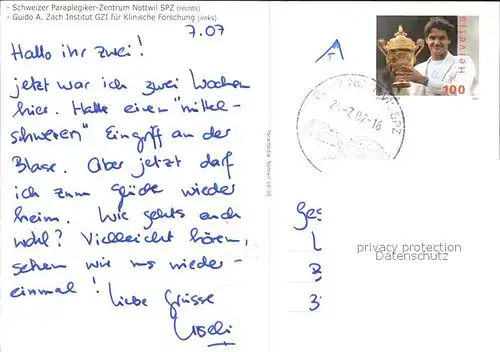 - Schweizer Paraplegiker-Zentrum Nottwil SPZ (rechts)
- Guido A. Zäch Institut GZI für Klinische Forschung (links)
7.07
Hallo ihr zwei!
jetzt war ich zwei Wochen
hier. Hatte einen "mittel-
schweren" Eingriff an der
Blase. Aber jetzt darf
ich zum Glück wieder
heim. Wie gehts euch
wohl? Vielleicht hören,
sehen wir uns wieder-
einmal!
Liebe Grüsse
Uschi
Paraplegie Nottwil 10 05
A
Helvetia
100
privacy protection
Datenschutz